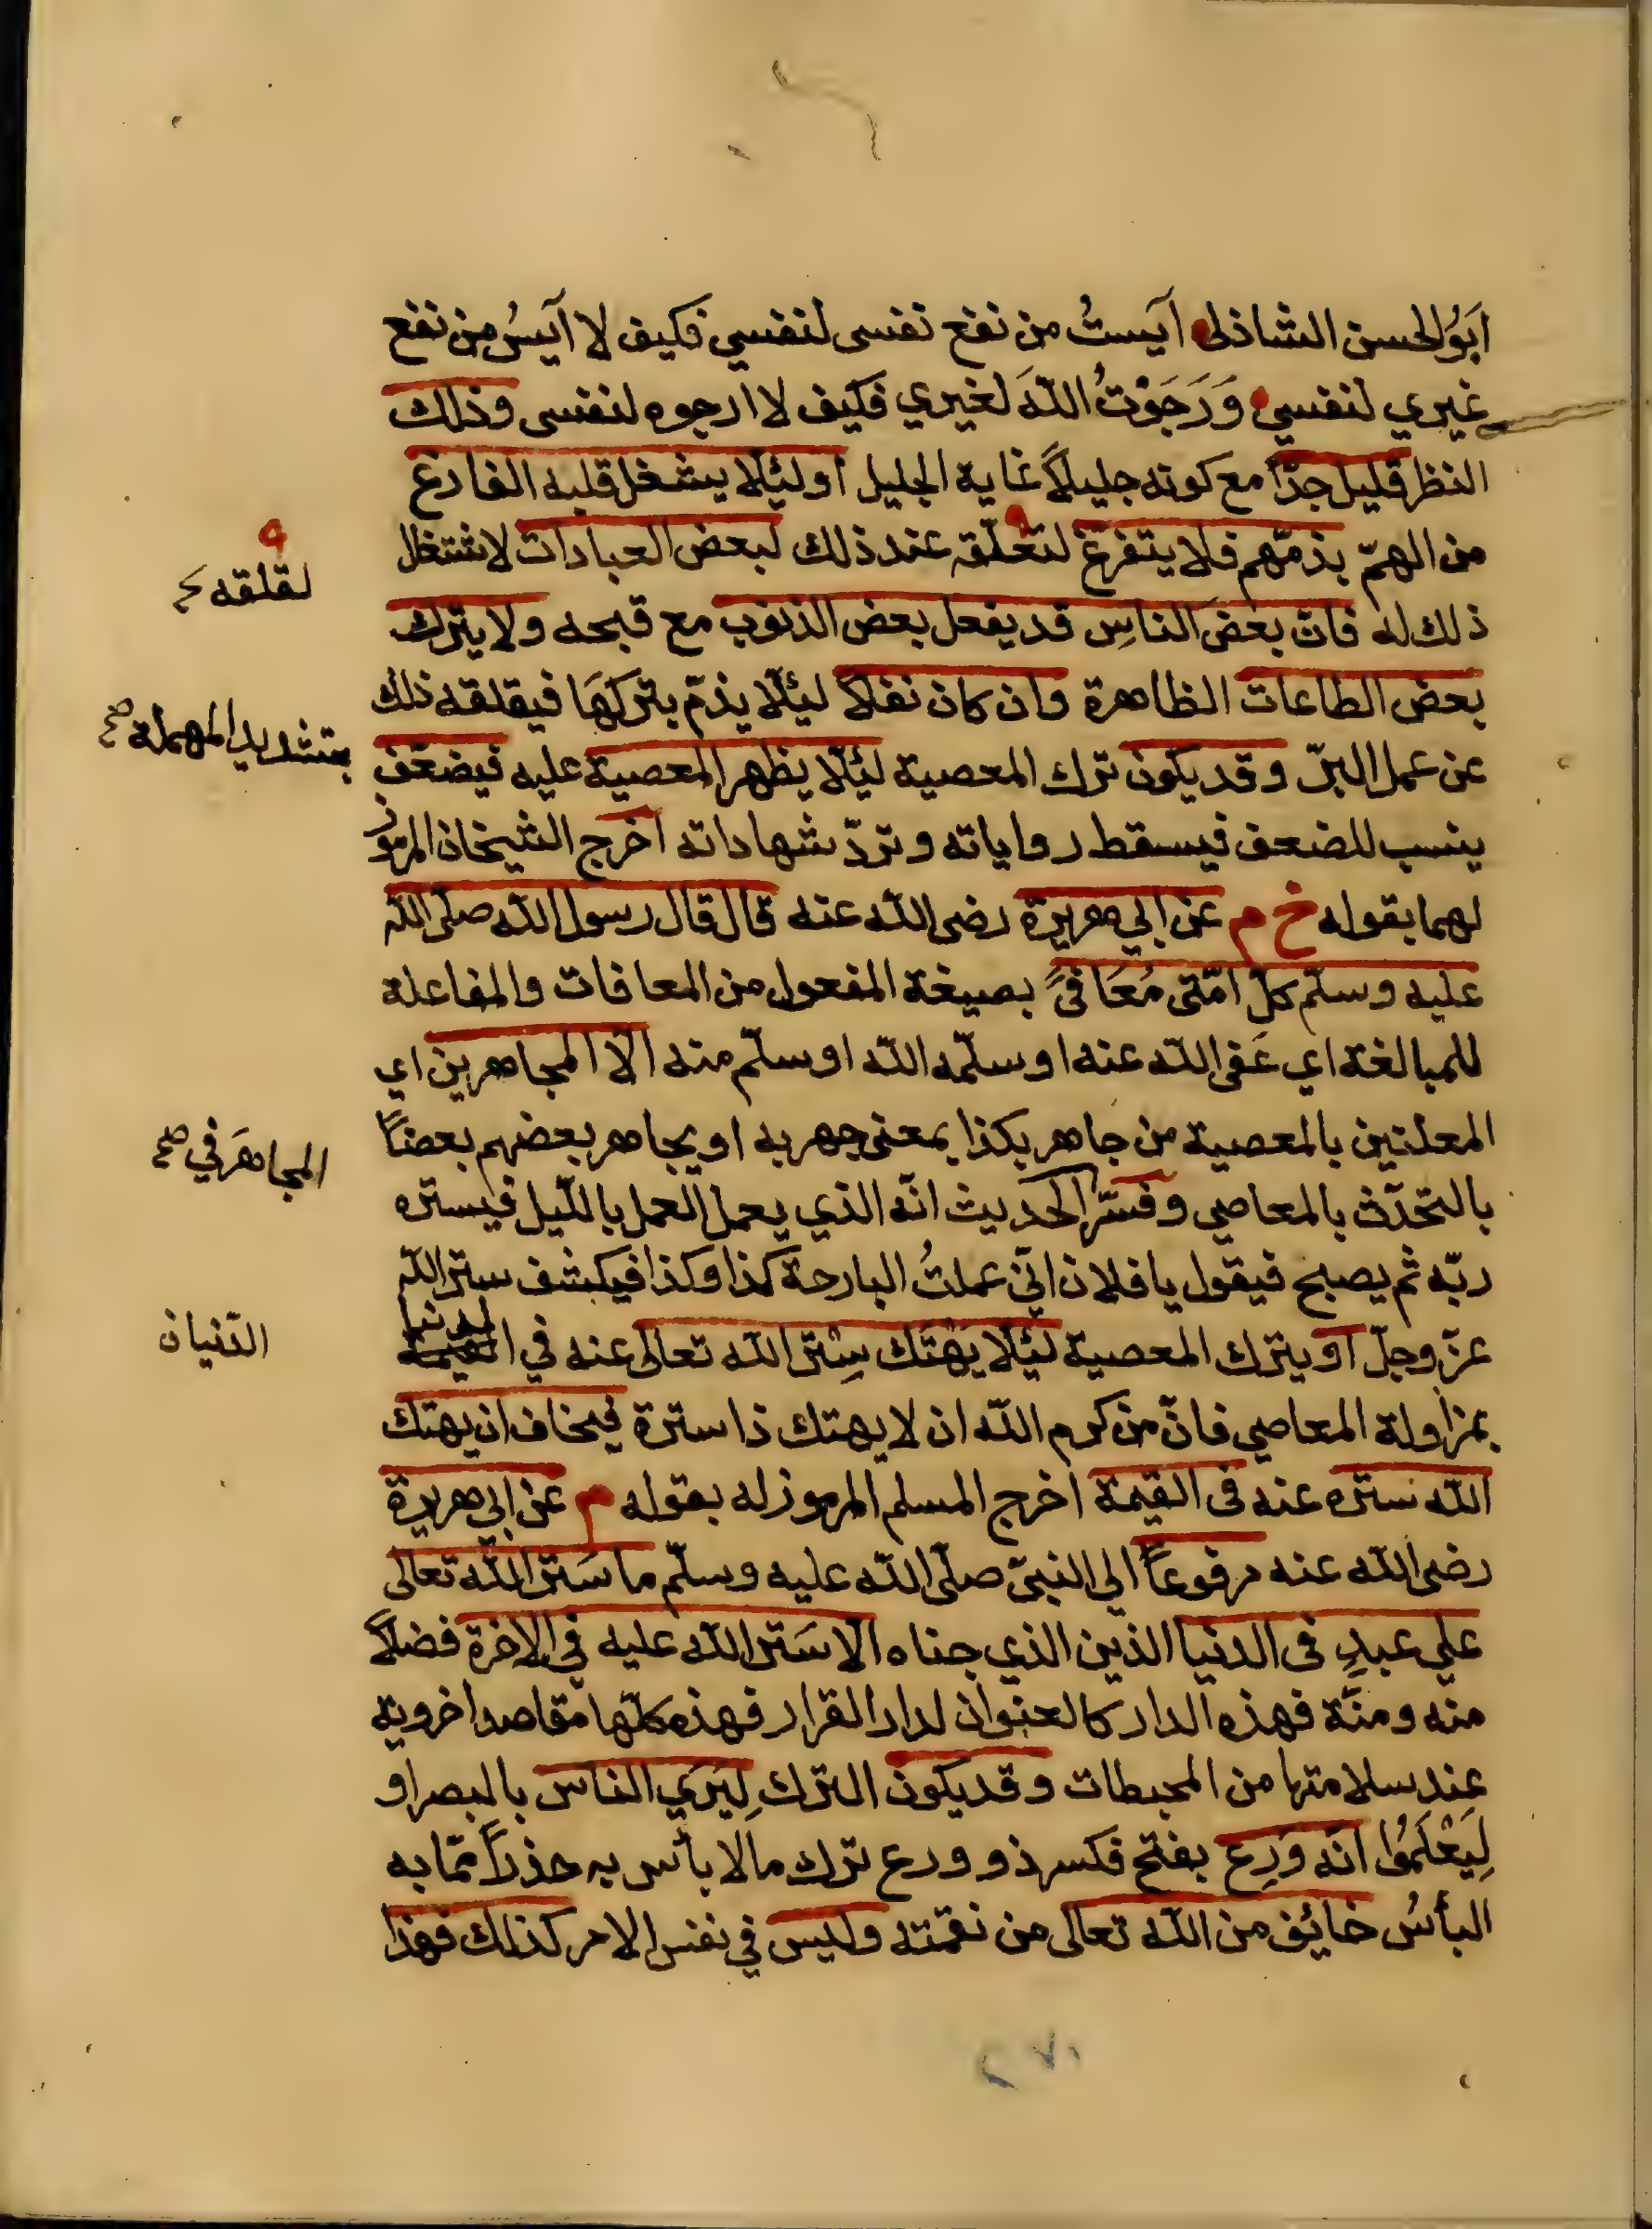 ابَوُالحسن الشاذلى آيستُ من نفع نفسى لنفسي فكيف لا آيسُ من نفع
غيري لنفسي وَرَجَوْتُ اللّهَ لغيري فكيف لا ارجوه لنفسى وذلك
النظر قليل جدّاً مع كونه جليلاً غاية الجليل اولئِلّا يشغل قلبه الفارغ
من الهمّ بذمّهم فلا يتفرغ لتعلّقه عند ذلك لبعض العبادات لاشتغال
لقلقه
ذلك له فان بعض الناسِ قد يفعل بعض الذنوب مع قبحه ولا يترك
بعض الطاعات الظاهرة وان كان نفلاً ليئلّا يذمّ بتركهَا فيقلقه ذلك
بتشديد المهملة صح
عن عمل البرّ وقد يكون ترك المعصية لئِلّا يظهر المعصية عليه فيضعّف
ينسب للضعف فيسقط رواياته وتردّ شهاداته اخرج الشيخان المرموز
لهما بقوله خ م عن ابي هريرة رضى اللّه عنه قال قال رسول اللّه صلّى اللّه
عليه وسلّم كلّ امّتى مُعَافىً بصيغة المفعول من المعافات والمفاعلة
للمبالغة اي عَفى اللّه عنه او سلّمه اللّه او سلّم منه الّا المجاهرين اي
المعلنين بالمعصية من جاهر بكذا بمعنى جهر به او يجاهر بعضهم بعضاً
المجاهَر في صح
بالتحدّث بالمعاصي وفسّر الحديث انّه الذي يعمل العمل بالليل فيستره
ربّه ثم يصبح فيقول يا فلان انّي عملتُ البارحة كذا وكذا فيكشف ستر اللّه
عزّ وجلّ او يترك المعصية لئِلّا يَهْتَك سِتْر اللّه تعالى عنه في الدنيا
الدّنيان
بمزاولة المعاصي فانّ من كرم اللّه ان لا يهتك ذا سترة فيخاف ان يهتك
اللّه ستره عنه فى القيمة اخرج المسلم المرموز له بقوله م عن ابي هريرة
رضى اللّه عنه مرفوعاً الى النبىّ صلّى اللّه عليه وسلّم ما سَتَر اللّه تعالى
علي عبدٍ فى الدنيا الذين الذي جناه الّا سَتَر اللّه عليه في الاخرة فضلاً
منه ومنّة فهذه الدار كالعنوان لدار القرار فهذه كلّها مقاصد اخروية
عند سلامتها من المحبطات وقد يكون الترك لِيَرَي الناس بالبصر او
لِيَعْلَمُوا انّه وَرِع بفتح فكسر ذو ورع ترك مالا بأس به حذراً ممّا به
البأسُ خايُف من اللّه تعالى من نقمته وليس في نفس الامر كذلك فهذا